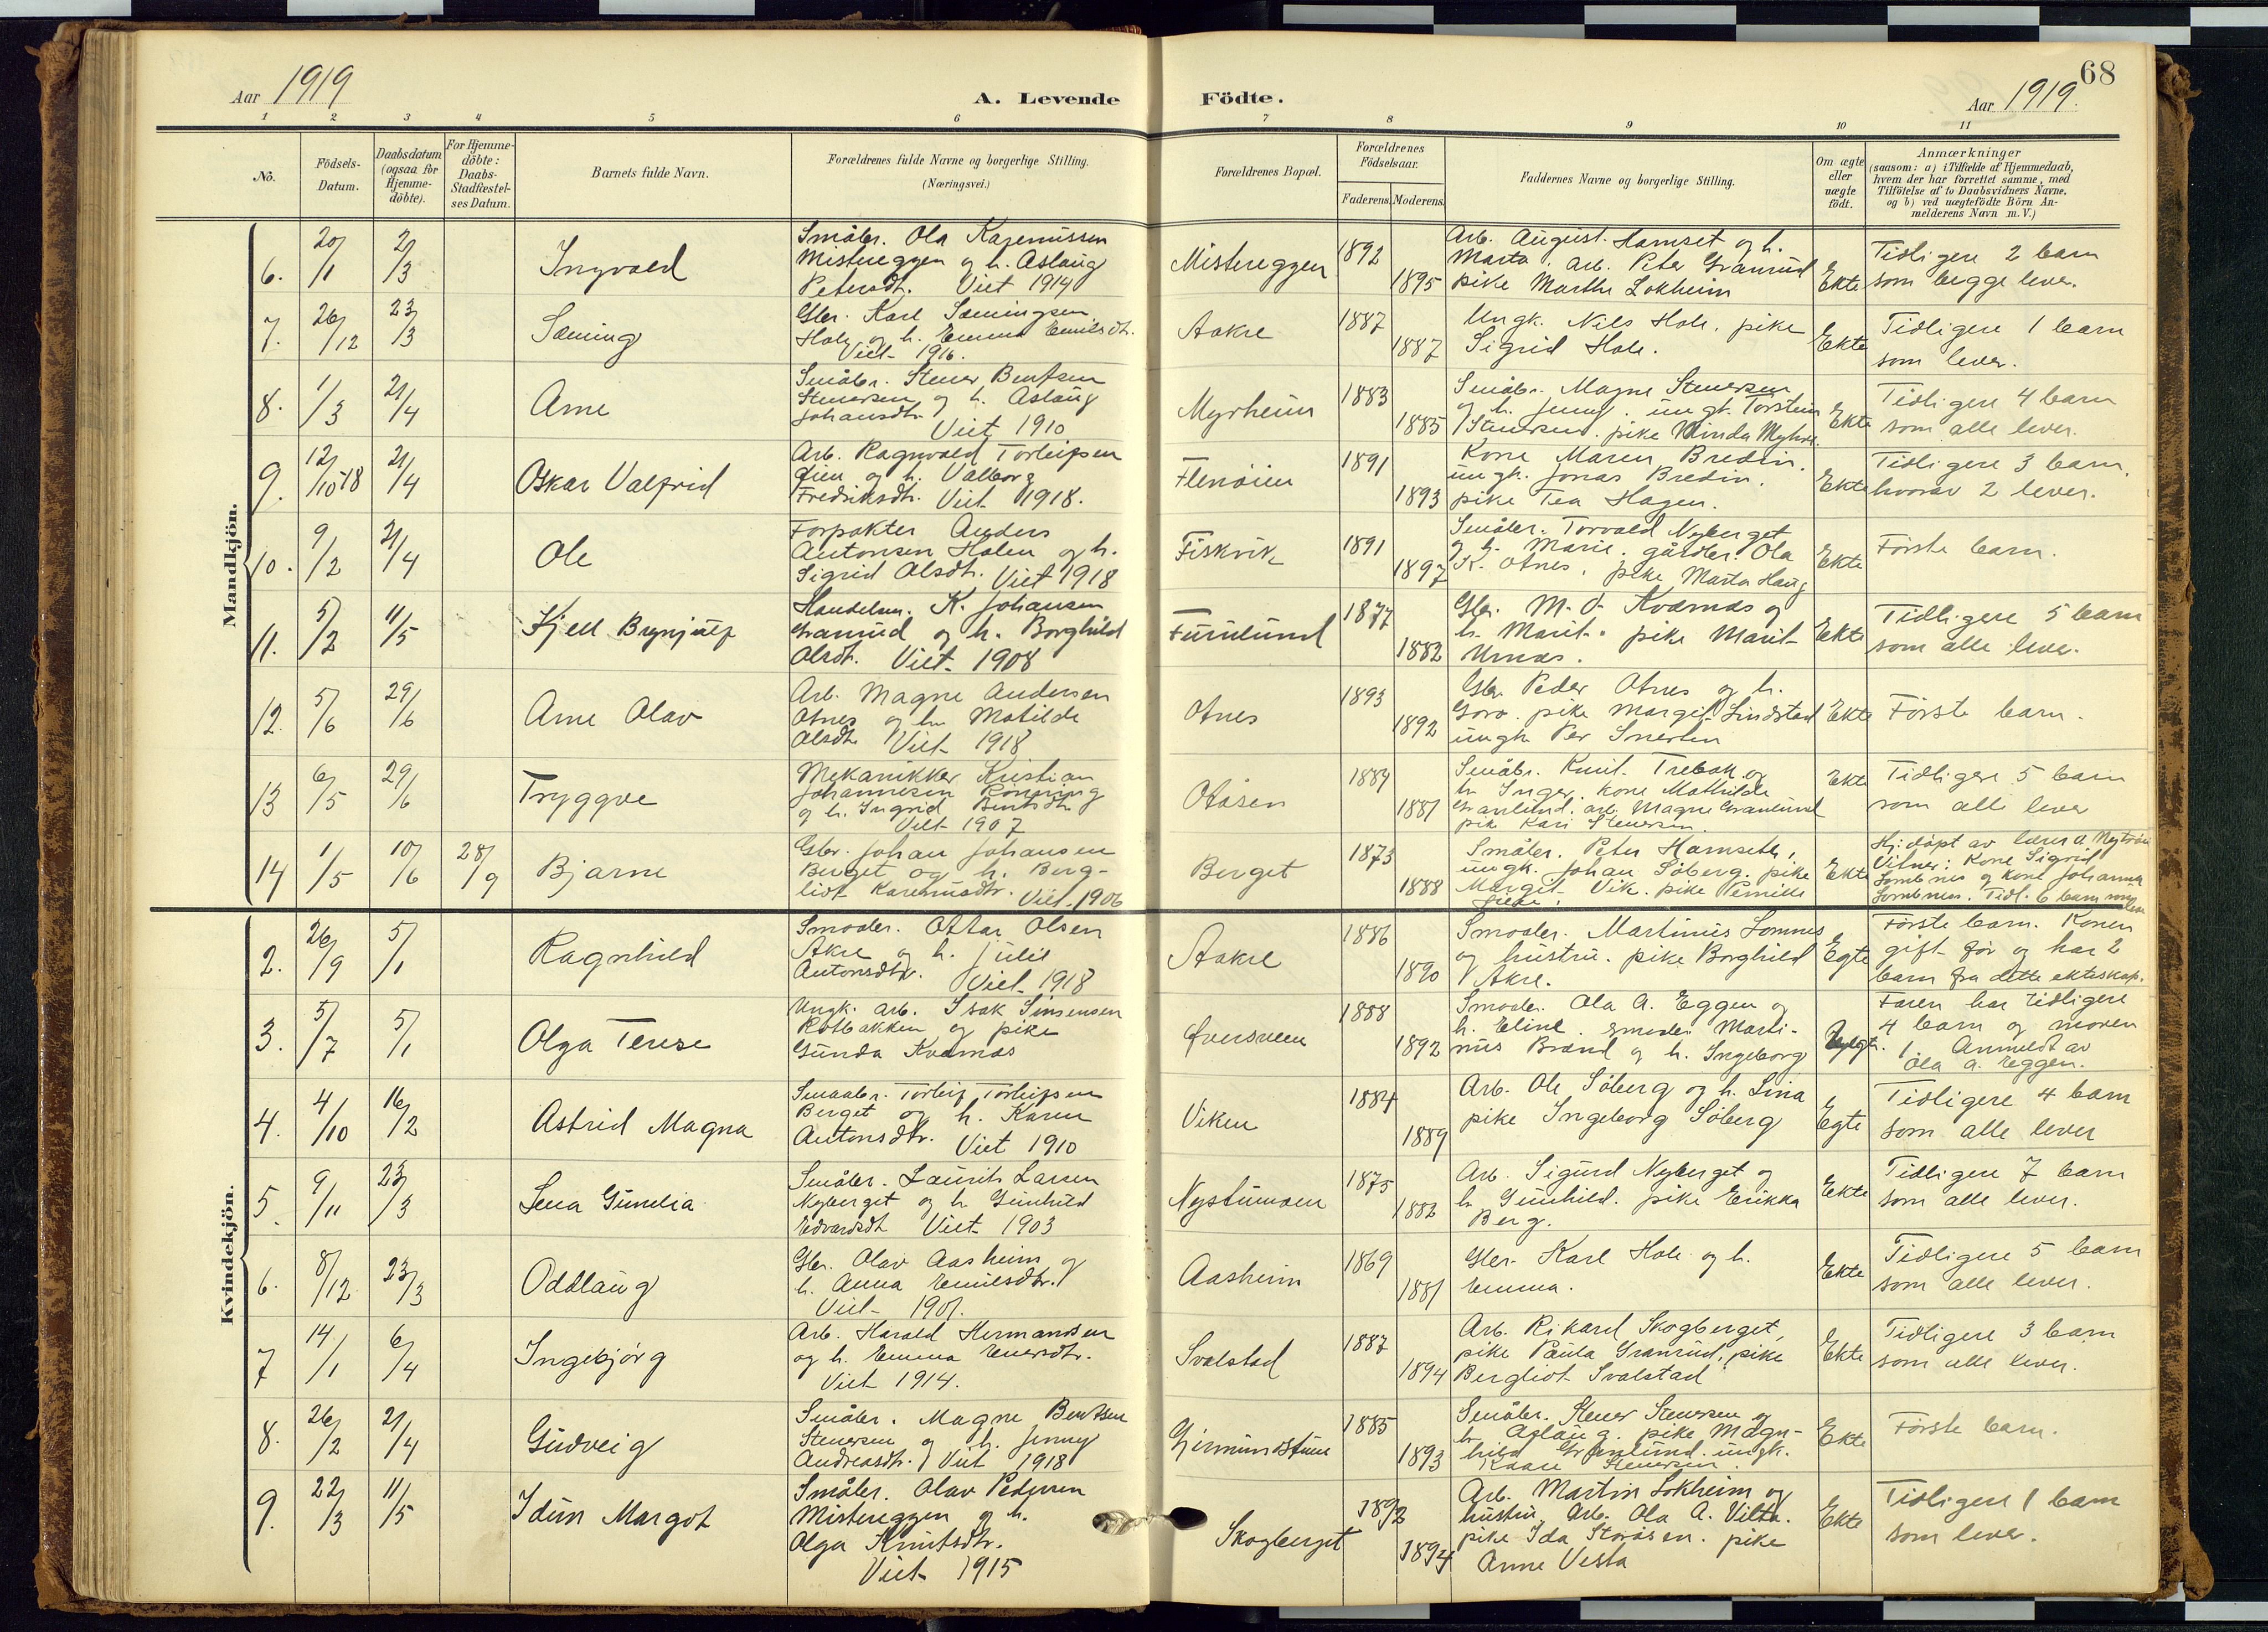 Aar 1919
A. Levende Födte.
68
Aar 1919.
1 2 3 4 5 6 7 8 9 10 11
No.
Födsels-Datum.
Daabsdatum (ogsaa for Hjemme-döbte).
For Hjemme-döbte: Daabs-Stadfæstel-ses Datum.
Barnets fulde Navn.
Forældrenes fulde Navne og borgerlige Stilling.
(Næringsvei.)
Forældrenes Bopæl.
Forældrenes Födselsaar.
Faderens. Moderens.
Faddernes Navne og borgerlige Stilling.
Om ægte eller uægte födt.
Anmærkninger
(saasom: a) i Tilfælde af Hjemmedaab,
hvem der har forrettet samme, med
Tilföielse af to Daabsvidners Navne.
og b) ved uægtefödte Börn An-
melderens Navn m. V.)
Mandkjön.
6. 20/1 2/3 Ingvald
Småbr. Ola Karenussen
Mistereggen og h. Aslaug
Petersdt. Viet 1914
Mistereggen 1892 1895
Arb. August Hamset og h.
Marta. arb. Peter Granrud
pike Marthe Lokheim
Ekte
Tidligere 2 barn
som begge lever.
7. 26/12 23/3 Sæming
Gbr. Karl Sæmingsen
Hole og h. Emma Emilsdt.
Viet 1916.
Aakre 1887 1887
Ungk. Nils Hole. pike
Sigrid Hole.
Ekte
Tidligere 1 barn
som lever.
8. 1/3 21/4 Arne
Småbr. Stener Bentsen
Stenersen og h. Aslaug
Johansdt. Viet 1910
Myrheim 1883 1885
Småbr. Magne Stenersen
og h. Jenny. ungk. Torstein
Stenersen. pike Minda Myhre.
Ekte
Tidligere 4 barn
som alle lever.
9. 12/10-18 21/4 Oskar Valfrid
Arb. Ragnvald Torleifsen
Øien og h. Valborg
Fredriksdt. Viet 1918.
Flenøien 1891 1893
Kone Maren Bredin.
ungk. Jonas Bredin.
pike Tea Hagen.
Ekte
Tidligere 3 barn,
hvorav 2 lever.
10. 9/2 21/4 Ole
Forpakter Anders
Antonsen Holen og h.
Sigrid Olsdt. Viet 1918
Fiskvik 1891 1897
Småbr. Torvald Nyberget
og h. Marie. gårdbr. Ola
K. Otnes. pike Marta Haug
Ekte
Første barn.
11. 5/2 11/5 Kjell Brynjulf
Handelsm. K. Johansen
Granrud og h. Borghild
Olsdt. Viet 1908
Furulund 1877 1882
Gbr. M. O. Kværnæs og
h. Marit. pike Marit
Urnæs.
Ekte
Tidligere 5 barn
som alle lever.
12. 5/6 29/6 Arne Olav
Arb. Magne Andersen
Otnes og h. Matilde
Olsdt. Viet 1918
Otnes 1893 1892
Gbr. Peder Otnes og h.
Goro. pike Margit Lindstad
ungk. Per Snerten
Ekte
Første barn.
13 6/5 29/6 Tryggve
Mekanikker Kristian
Johannesen Rønning
og h. Ingrid Bentsdt.
Viet 1907
Otåsen 1884 1881
Småbr. Knut Trebak og
h. Inger. kone Mathilde
Granlund. arb. Magne Granlund
pik Kari Stenersen.
Ekte
Tidligere 5 barn
som alle lever
14 1/5 10/6 28/9 Bjarne
Gbr. Johan Johansen
Berget og h. Berg-
liot Karenusdtr. Viet 1906
Berget 1873 1888
Småbr. Peter Hamseth,
ungk. Johan Søberg. pike
Margit Vik. pike Pernille
Ekte
Hj: døpt av lærer A. Nytrøen
Vitner: Kone Sigrid
og kone Johanna
Tidl. 6 barn som lever
Kvindekjön.
2. 26/9 5/1 Ragnhild
Smaabr. Ottar Olsen
Akre og h. Julie
Antonsdtr. Viet 1918
Aakre 1886 1890
Smaabr. Martinius Lomnes
og hustru. pike Borghild
Akre.
Egte
Første barn. Konen
gift før og har 2
barn fra dette ekteskap.
3. 5/7 5/1 Olga Terese
Ungk. arb. Isak Simensen
Rotbakken og pike
Gunda Kværnæs
Øversveen 1888 1892
Smaabr. Ola A. Eggen og
h. Eline. smaabr. Marti-
nius Brænd og h. Ingeborg
Uegt.
Faren har tidligere
4 barn og moren
1. Anmeldt av
Ola A. Eggen.
4. 4/10 16/2 Astrid Magna
Smaabr. Torleif Torleifsen
Berget og h. Karen
Antonsdtr. Viet 1910
Viken 1884 1889
Arb. Ole Søberg og h. Lina
pike Ingeborg Søberg
Egte
Tidligere 4 barn
som alle lever
5. 9/11 23/3 Lena Gunelia
Småbr. Laurits Larsen
Nyberget og h. Gunhild
Edvardsdt. Viet 1903
Nystumoen 1875 1882
Arb. Sigurd Nyberget og
h. Gunhild. pike Erikka
Berg.
Ekte
Tidligere 7 barn
som alle lever.
6. 8/12 23/3 Oddlaug
Gbr. Olav Aasheim og
h. Anna Emilsdtr.
Viet 1901.
Aasheim 1869 1881
Gbr. Karl Hole og h.
Emma.
Ekte
Tidligere 5 barn
som alle lever.
7 14/1 6/4 Ingebjørg
Arb. Harald Hermansen
og h. Emma Einersdtr.
Viet 1914.
Svalstad 1887 1894
Arb. Rikard Skogberget,
pike Paula Granrud, pike
Bergliot Svalstad
Ekte
Tidligere 3 barn
som alle lever.
8. 26/2 21/4 Gudveig
Småbr. Magne Bentsen
Stenersen og h. Jenny
Andreasdt. Viet 1918
Girmundstuen 1885 1893
Småbr. Stener Stenersen og
h. Aslaug. pike Magn-
hild Granlund. ungk.
Kaare Stenersen.
Ekte
Første barn.
9. 22/3 11/5 Idun Margot
Småbr. Olav Pedersen
Mistereggen og h.
Olga Knutsdtr.
Viet 1915
Skogberget 1892 1894
Arb. Martin Lokheim og
hustru. Arb. Ola A. Vilta.
pike Ida Storåsen. pike
Anne Vesta
Ekte
Tidligere 1 barn
som lever.